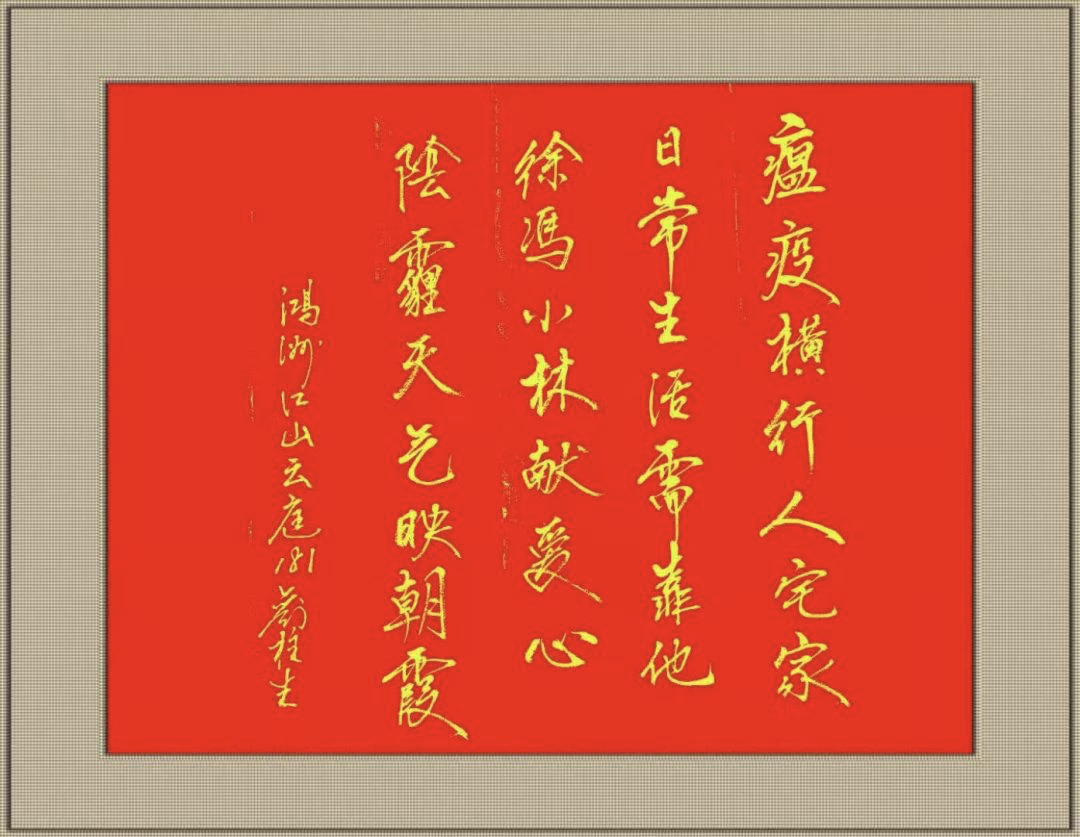 瘟疫横行人宅家
日常生活需靠他
徐冯小林献爱心
陰霾天气映朝霞
鸿洲江山云庭181劉生